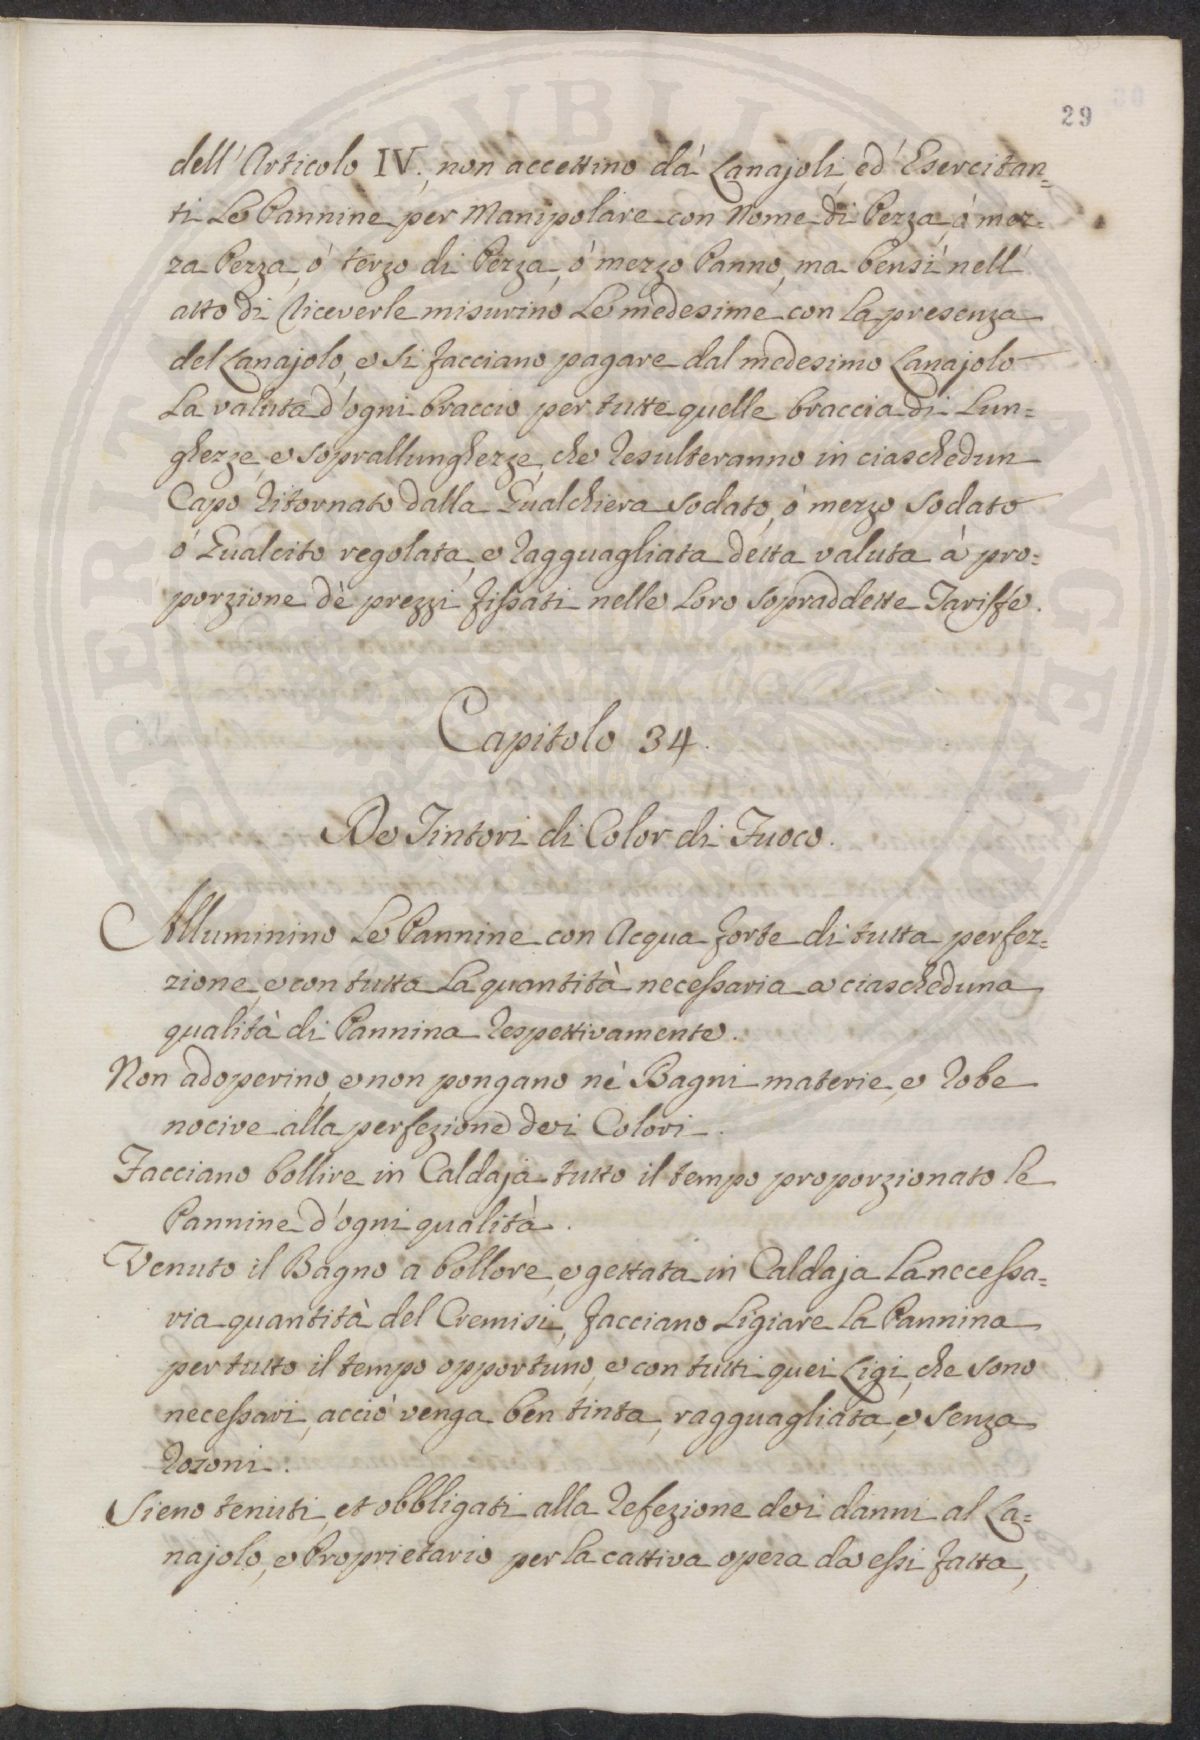 29
dell' Articolo IV., non accettino dà Lanajoli, ed' Esercitan=
ti Le Pannine per Manipolare con Nome di Pezza ò mez=
za Pezza, ò terzo di Pezza, ò mezzo Panno, ma bensì nell'
atto di riceverle misurino Le medesime con La presenza
del Lanajolo, e si facciano pagare dal medesimo Lanajolo
La valuta d'ogni braccio per tutte quelle braccia di Lun=
ghezze, e soprallunghezze, che resulteranno in ciaschedun
Capo ritornato dalla Gualchiera sodato, ò mezzo sodato
ò Gualcito regolata, e ragguagliata detta valuta à pro=
porzione dè prezzi fissati nelle Loro sopraddette Tariffe.
Capitolo 34.
De Tintori di Color di Fuoco.
Alluminino Le Pannine con Acqua forte di tutta perfez=
zione, e con tutta La quantità necessaria a ciascheduna
qualità di Pannina respettivamente.
Non adoperino, e non pongano né Bagni materie, e robe
nocive alla perfezione dei Colori.
Facciano bollire in Caldaja tutto il tempo proporzionato le
Pannine d'ogni qualità.
Venuto il Bagno a bollore, e gettata in Caldaja La necessa=
ria quantità del Cremisi, facciano Ligiare La Pannina
per tutto il tempo opportuno, e con tutti quei Ligi, che sono
necessari, acciò venga ben tinta, ragguagliata, e senza
rozoni.
Sieno tenuti, et obbligati alla refezione dei danni al La=
najolo, e Proprietario per la cattiva opera da essi fatta,